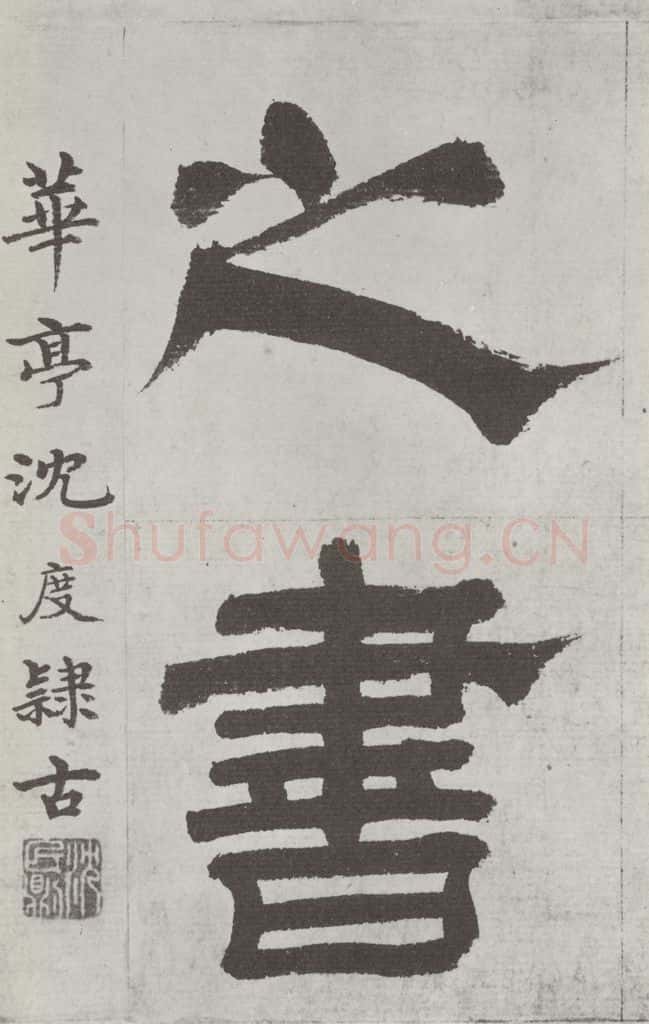 之書
華亭沈度隸古
Shufawang.CN